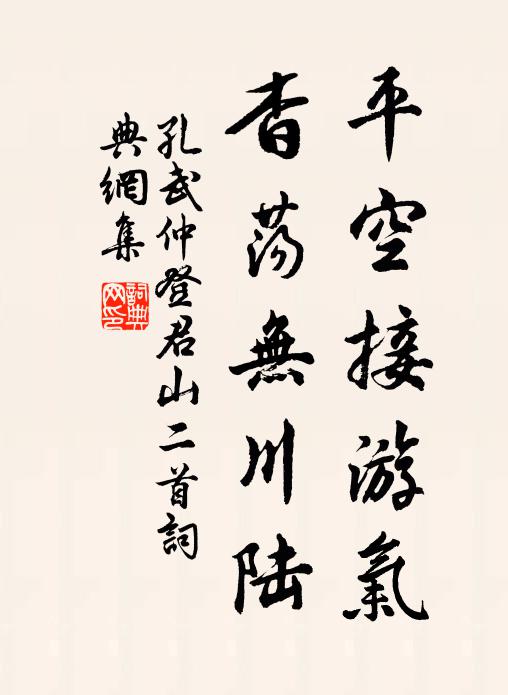 平空接游氣
杳荡無川陆
孔武仲登君山二首詞
典網集
詞典
网印